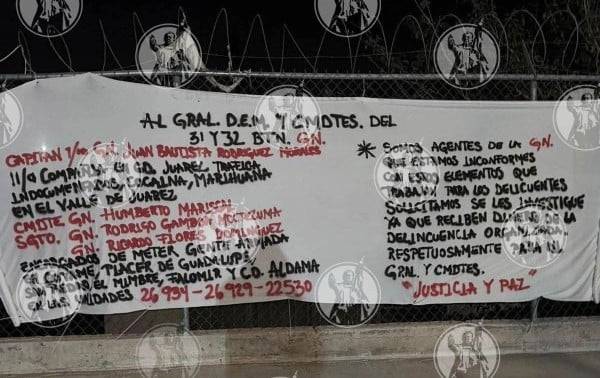 AL GRAL. D.E.M. Y CMDTES. DEL
31 Y 32 BTN. GN.
CAPITAN 1/o GN. JUAN BAUTISTA RODRIGUEZ MORALES
11/a COMPAÑIA EN CD. JUAREZ TRAFICA
INDOCUMENTADOS, COCAINA, MARIHUANA
EN EL VALLE DE JUAREZ
CMDTE. GN. HUMBERTO MARISCAL
SGTO. GN. RODRIGO GAMBOA MOCTEZUMA
GN. RICARDO FLORES DOMINGUEZ
ENCARGADOS DE METER GENTE ARMADA
EN COYAME, PLACER DE GUADALUPE,
EL MIMBRE, FALOMIR Y CD. ALDAMA
EN LAS UNIDADES 26934-26929-22530
* SOMOS AGENTES DE LA GN.
QUE ESTAMOS INCONFORMES
CON ESTOS ELEMENTOS QUE
TRABAJAN PARA LOS DELICUENTES
SOLICITAMOS SE LES INVESTIGUE
YA QUE RECIBEN DINERO DE LA
DELINCUENCIA ORGANIZADA.
RESPETUOSAMENTE PARA MI
GRAL. Y CMDTES.
"JUSTICIA Y PAZ"